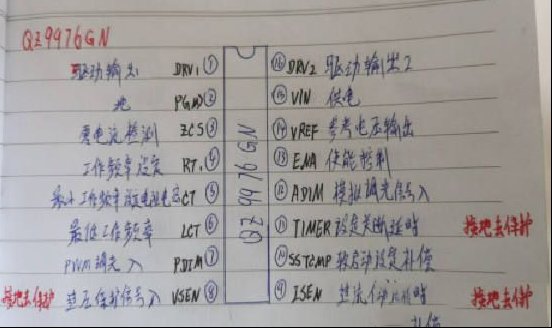 QZ9976GN
驱动输出1 DRV1 ① ⑯ DRV2 驱动输出2
地 PGND ② ⑮ VIN 供电
零电流检测 ZCS ③ ⑭ VREF 参考电压输出
工作频率设定 RT. ④ ⑬ ENA 使能控制
最小工作频率 CT ⑤ ⑫ ADIM 模拟调光信号入
最低工作频率 LCT ⑥ TIMER 设定关断延时 接地去保护
PWM调光入 PDIM ⑦ SSTCMP 软启动设定补偿
接地去保护 过压保护信号入 VSEN ⑧ ⑨ ISEN 接地去保护
QZ9976GN
补偿